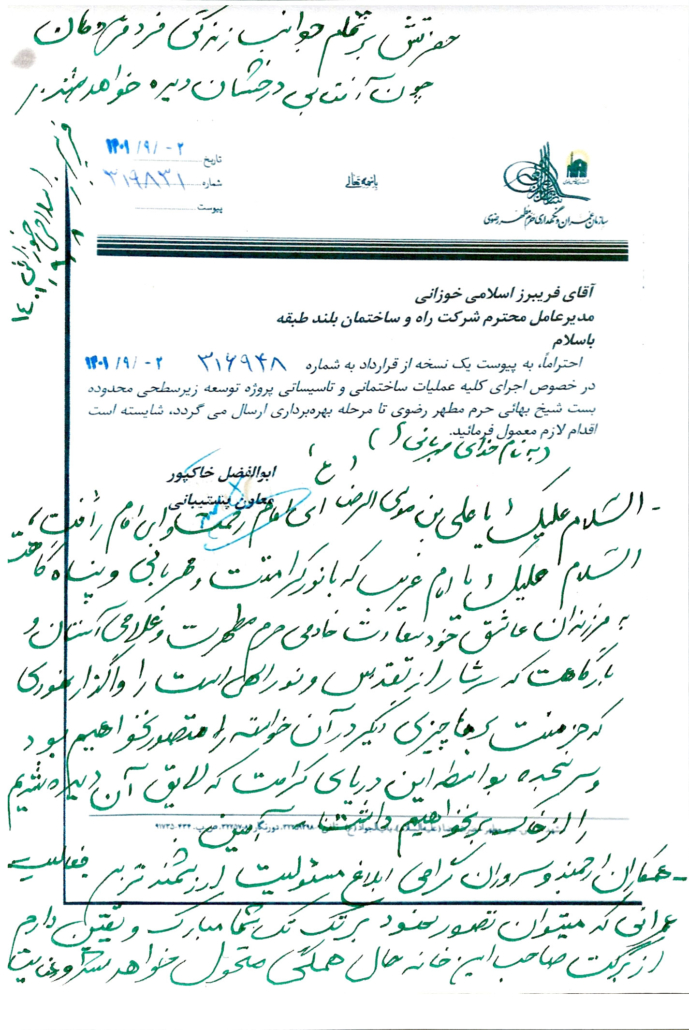 حضرتش بر تمام جوانب زندگی فرد فردمان
چون آفتابی درخشان دیده خواهد شد
تاریخ ۱۴۰۱/۹/۰۲
شماره ۳۱۹۸۳۱
پیوست
باسمه تعالی
سازمان عمران و نگهداری حرم مطهر رضوی
فریبرز
اسلامی خوزانی
آقای فریبرز اسلامی خوزانی
مدیرعامل محترم شرکت راه و ساختمان بلند طبقه
باسلام
احتراماً، به پیوست یک نسخه از قرارداد به شماره ۳۱۶۹۴۸ ۱۴۰۱/۹/۰۲
در خصوص اجرای کلیه عملیات ساختمانی و تاسیساتی پروژه توسعه زیرسطحی محدوده
بست شیخ بهائی حرم مطهر رضوی تا مرحله بهره‌برداری ارسال می گردد، شایسته است
اقدام لازم معمول فرمائید.
(به نام خدای مهربانی)
ابوالفضل خاکپور
معاون پشتیبانی
- السلام علیک یا علی بن موسی الرضا (ع) ای امام رحمت و ای امام رأفت،
السلام علیک یا امام غریب که با نور کرامتت و مهربانی و پناهگاهت
به فرزندان عاشق خود سعادت خادمی حرم مطهرت و غلامی آستان و
بارگاهت که سرشار از تقدس و نور الهی است را واگذار نمودی
که جز منت برما چیزی دیگر در آن خواسته را متصور نخواهیم بود
و سر سجده بواسطه این دریای کرامت که لایق آن دیده شدیم
را از خاک بر نخواهیم داشت آمین
- همکاران ارجمند و سروران گرامی ابلاغ مسئولیت ارزشمندترین فعالیت
عمرانی که میتوان تصور نمود بر تک تک شما مبارک و یقین دارم
از برکت صاحب این خانه حال همگی متحول خواهد شد و عنایت